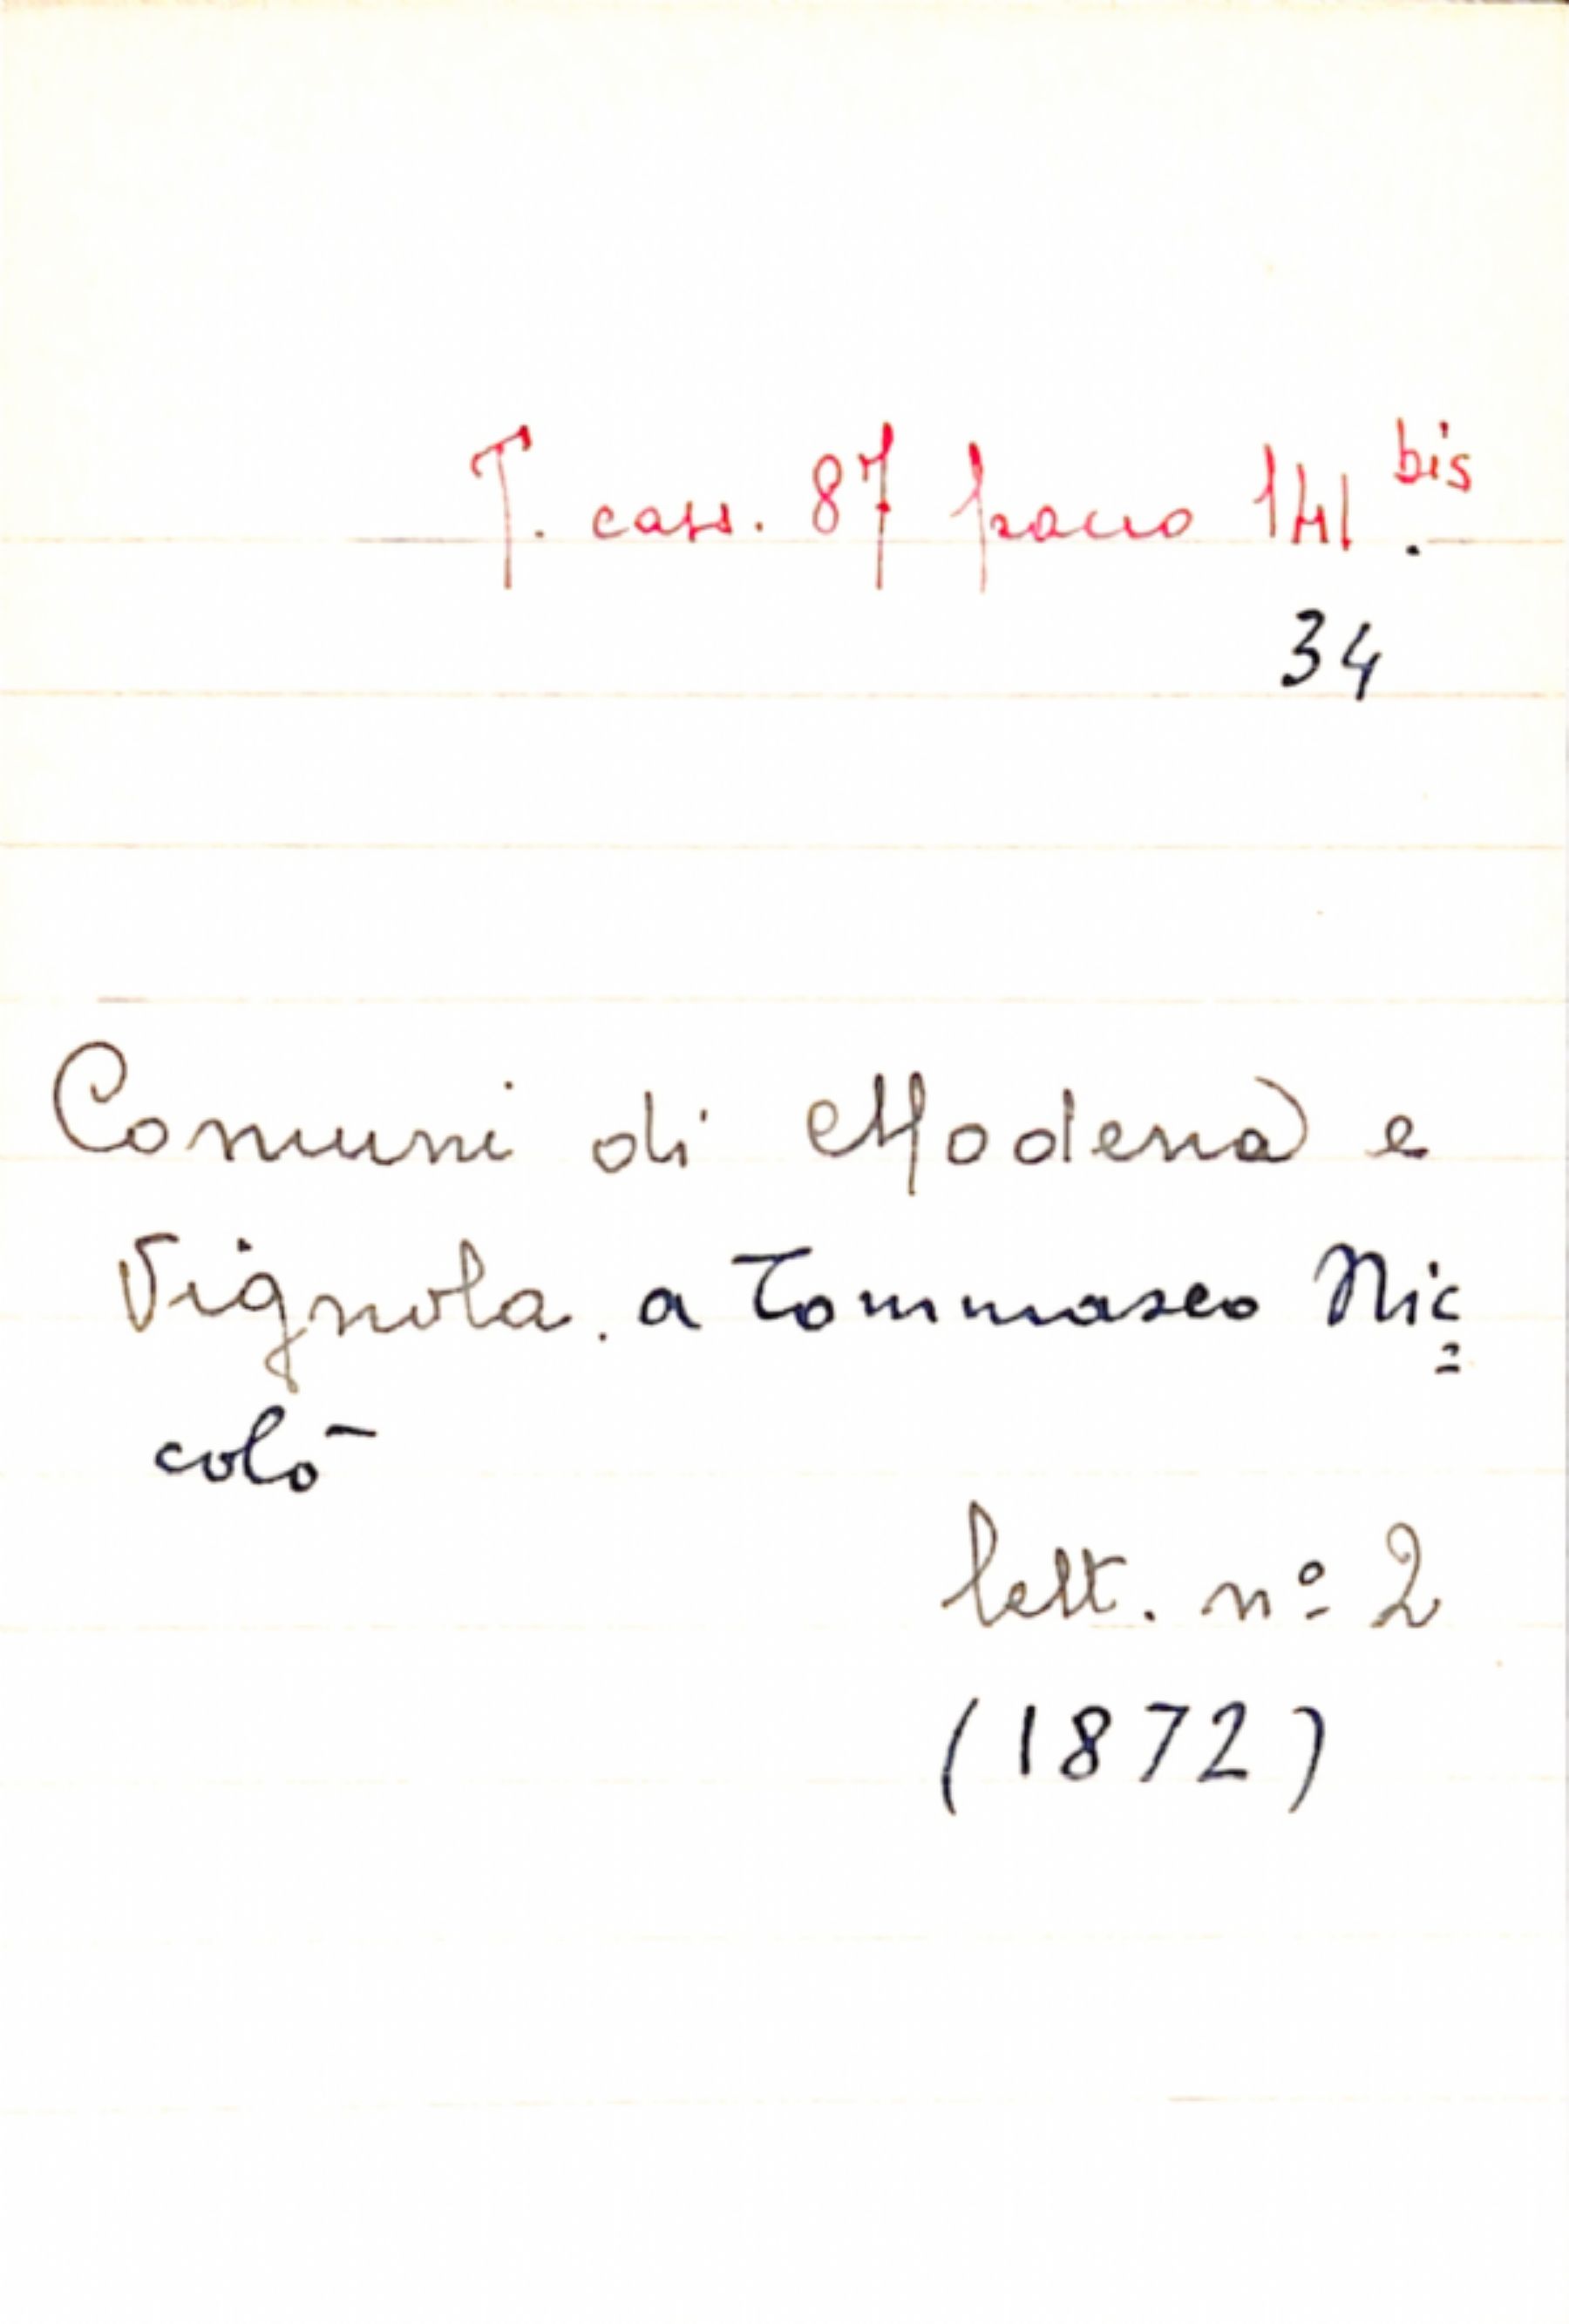 T. cass. 87 pacco 141 bis.
34
Comuni di Modena e
Vignola. a Tommaseo Nic=
colò
lett. nº 2
(1872)